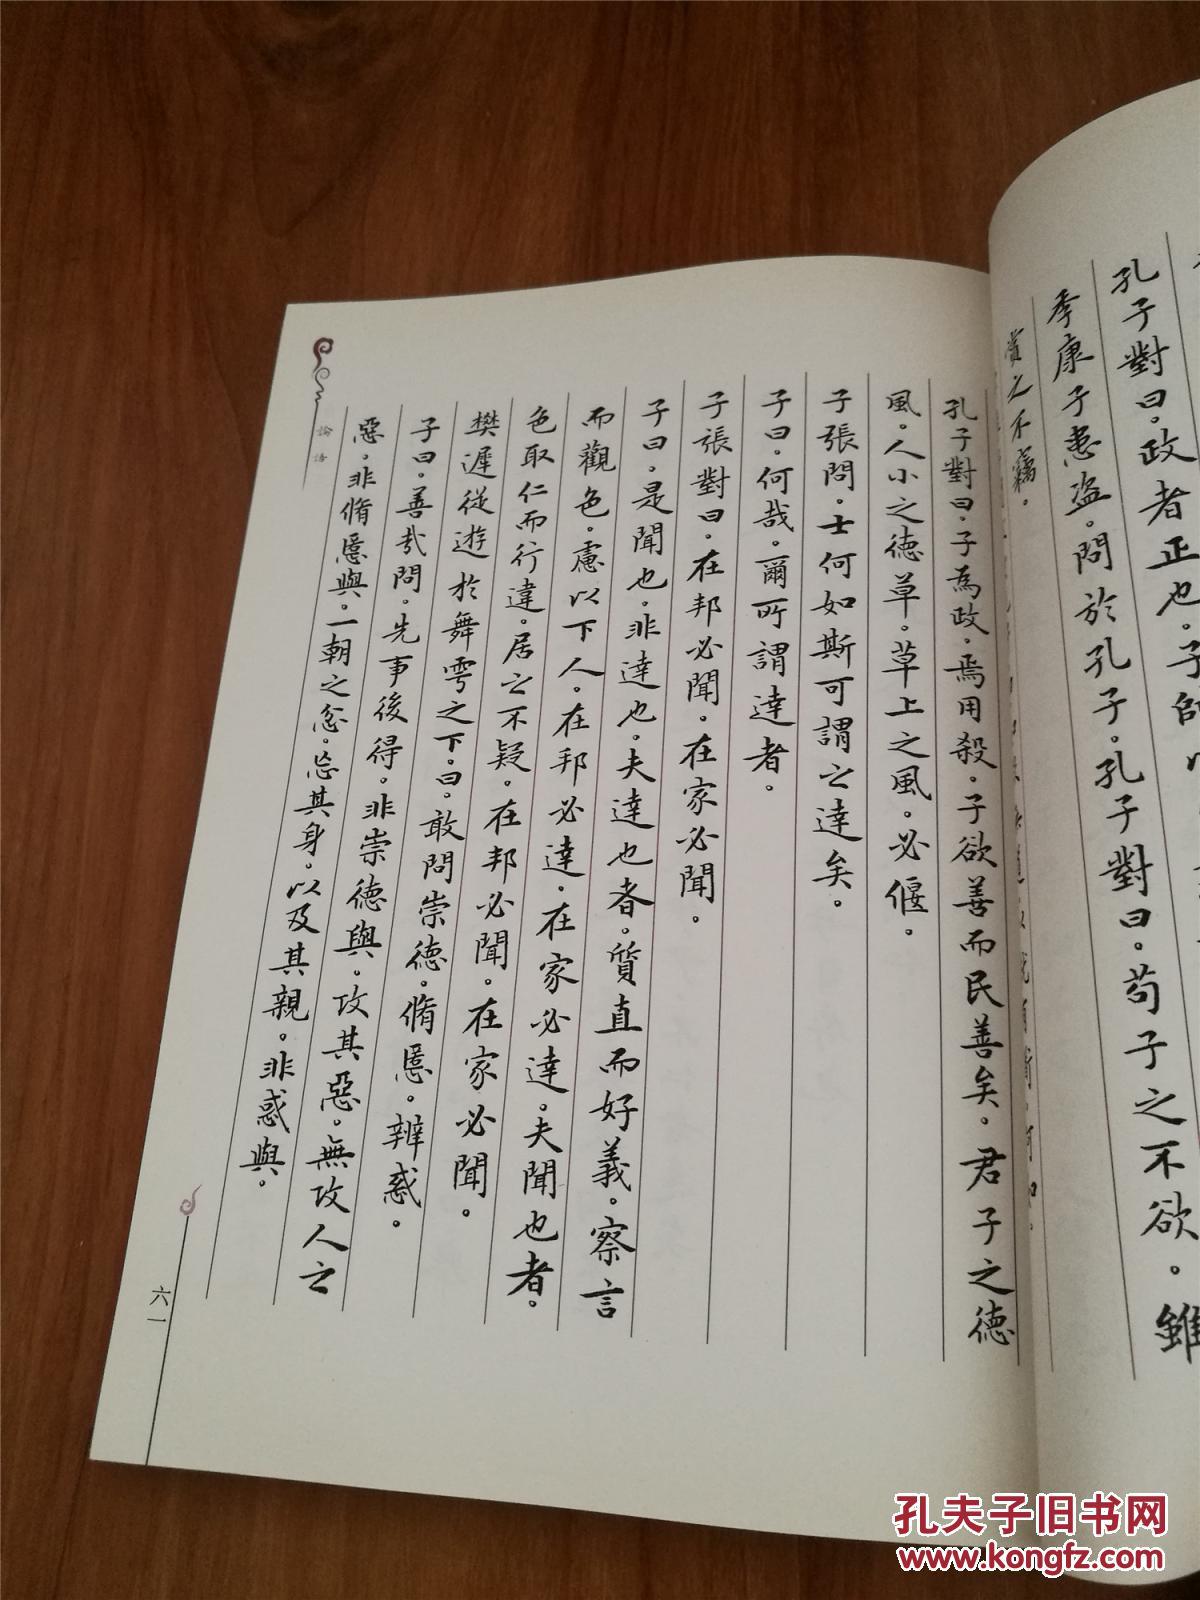 孔子對曰。政者正也。子帥以
季康子患盗。問於孔子。孔子對曰。苟子之不欲。雖
賞之不竊。
孔子對曰。子為政。焉用殺。子欲善而民善矣。君子之德
風。人小之德草。草上之風。必偃。
子張問。士何如斯可謂之達矣。
子曰。何哉。爾所謂達者。
子張對曰。在邦必聞。在家必聞。
子曰。是聞也。非達也。夫達也者。質直而好義。察言
而觀色。慮以下人。在邦必達。在家必達。夫聞也者。
色取仁而行違。居之不疑。在邦必聞。在家必聞。
樊遲從遊於舞雩之下。曰。敢問崇德。脩慝。辨惑。
子曰。善哉問。先事後得。非崇德與。攻其惡。無攻人之
惡。非脩慝與。一朝之忿。忘其身。以及其親。非惑與。
論語
六一
孔夫子旧书网
www.kongfz.com